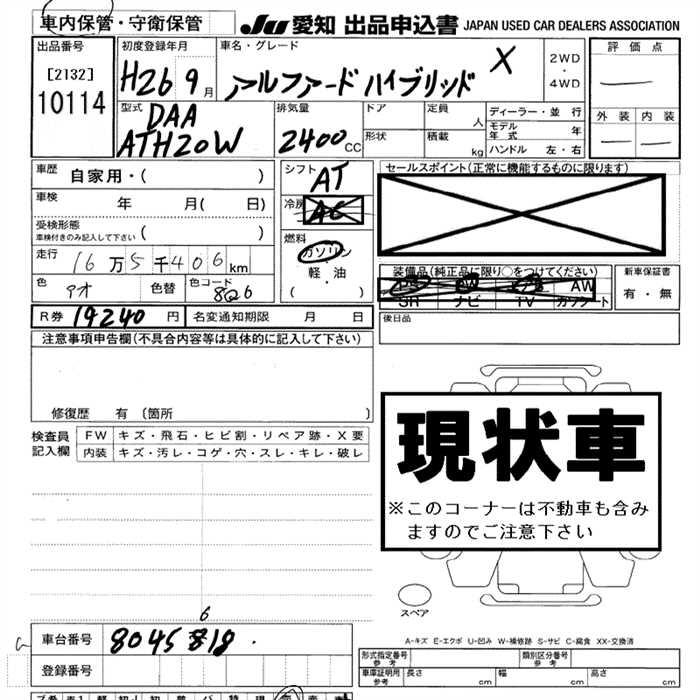 車内保管・守衛保管
JU 愛知 出品申込書 JAPAN USED CAR DEALERS ASSOCIATION
出品番号
[2132]
10114
初度登録年月
H26 9月
車名・グレード
アルファードハイブリッド X
2WD
・
4WD
評価点
外装 内装
型式
DAA
ATH20W
排気量
2400cc
ドア
形状
定員 人
積載 kg
ディーラー・並行
モデル年式 年
ハンドル 左・右
車歴 自家用・( )
車検 年 月( 日)
受検形態
車検付きのみ記入して下さい ( )
走行 16万5千406km
色 アオ 色替 色コード 8Q6
シフト AT
冷房 AC
燃料
ガソリン
軽・油
( )
セールスポイント(正常に機能するものに限ります)
装備品(純正品に限り○をつけてください)
AW
SR ナビ TV カワシート
新車保証書
有・無
R券 19240円 名変通知期限 月 日
後日品
注意事項申告欄(不具合内容等は具体的に記入して下さい)
修復歴 有〔箇所 〕
検査員記入欄
FW キズ・飛石・ヒビ割・リペア跡・X要
内装 キズ・汚レ・コゲ・穴・スレ・キレ・破レ
現状車
※このコーナーは不動車も含み
ますのでご注意下さい
スペア
A-キズ E-エクボ U-凹み W-補修跡 S-サビ C-腐食 XX-交換済
6
車台番号 8045818
登録番号
形式指定番号 参考
類別区分番号 参考
車庫証明用 参考 長さ cm 幅 cm 高さ cm